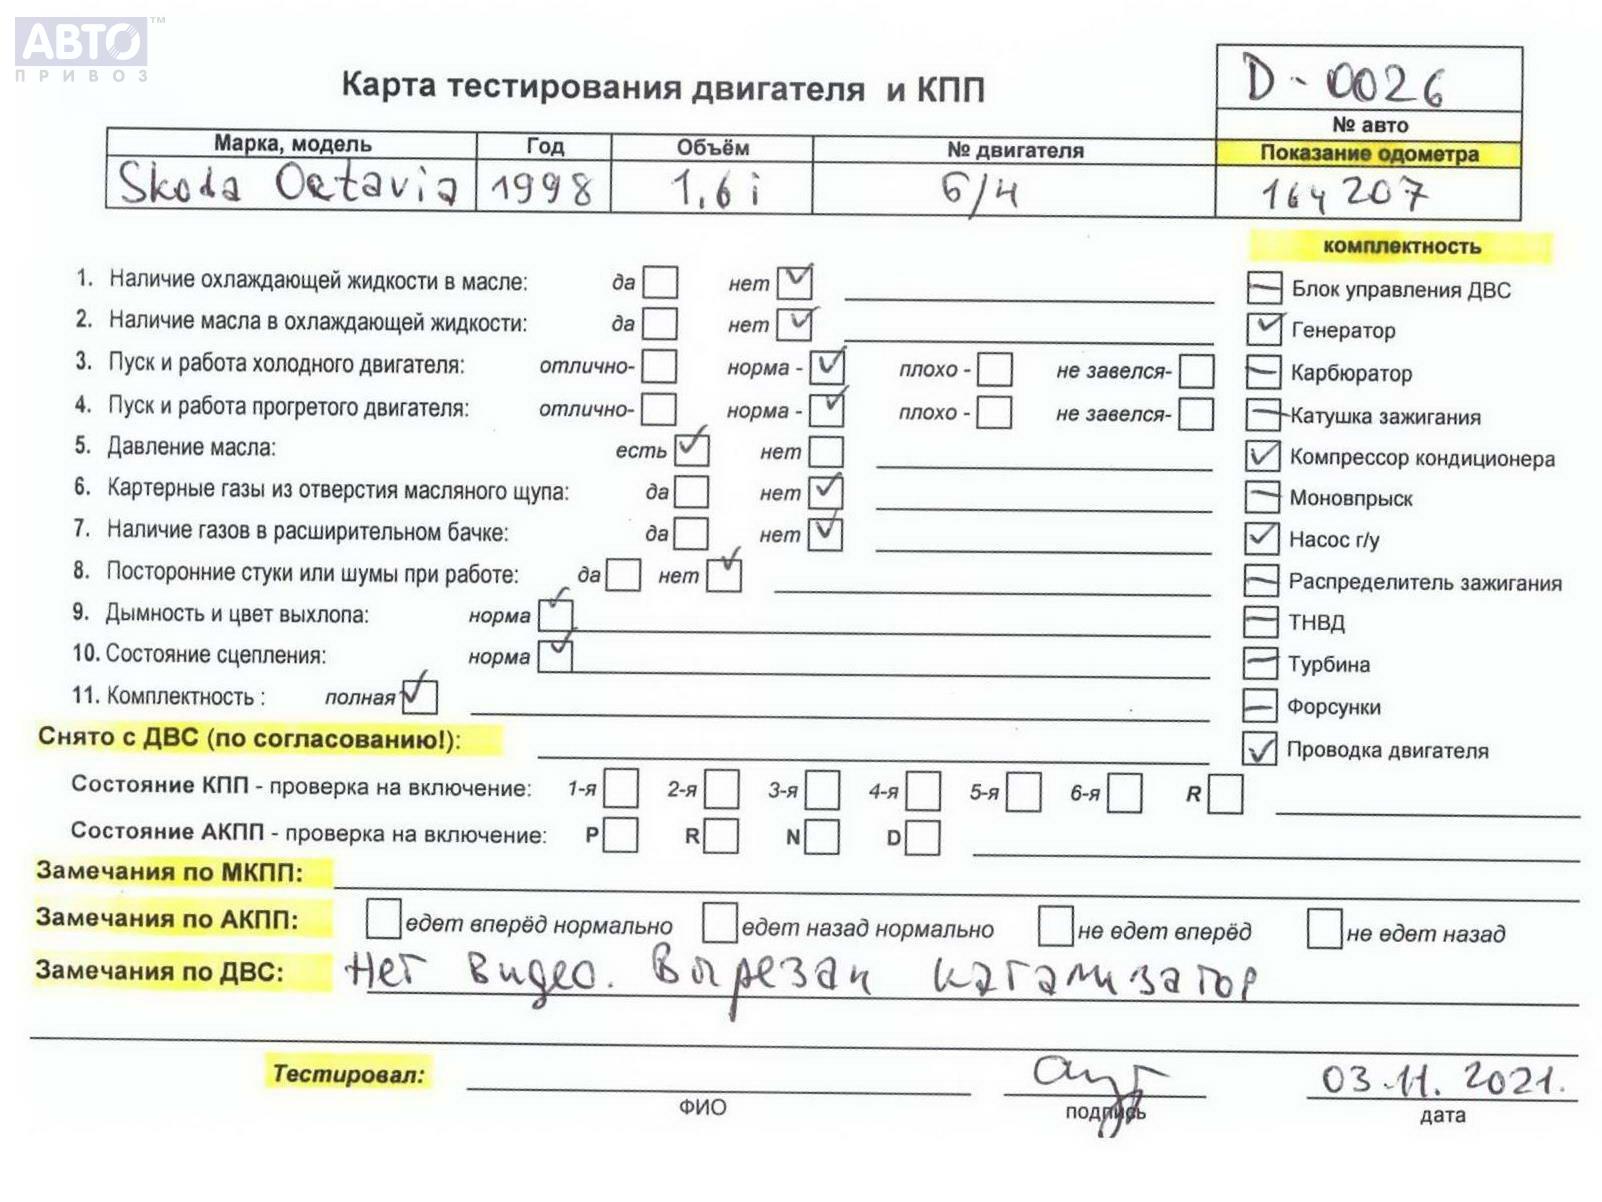 АВТО™
ПРИВОЗ
D-0026
Карта тестирования двигателя и КПП
№ авто
Марка, модель Год Объём № двигателя Показание одометра
Skoda Octavia 1998 1,6i Б/Н 164207
комплектность
1. Наличие охлаждающей жидкости в масле: да нет
Блок управления ДВС
2. Наличие масла в охлаждающей жидкости: да нет
Генератор
3. Пуск и работа холодного двигателя: отлично- норма - плохо - не завелся-
Карбюратор
4. Пуск и работа прогретого двигателя: отлично- норма - плохо - не завелся-
Катушка зажигания
5. Давление масла: есть нет
Компрессор кондиционера
6. Картерные газы из отверстия масляного щупа: да нет
Моновпрыск
7. Наличие газов в расширительном бачке: да нет
Насос г/у
8. Посторонние стуки или шумы при работе: да нет
Распределитель зажигания
9. Дымность и цвет выхлопа: норма
ТНВД
10. Состояние сцепления: норма
Турбина
11. Комплектность : полная
Форсунки
Снято с ДВС (по согласованию!):
Проводка двигателя
Состояние КПП - проверка на включение: 1-я 2-я 3-я 4-я 5-я 6-я R
Состояние АКПП - проверка на включение: P R N D
Замечания по МКПП:
Замечания по АКПП: едет вперёд нормально едет назад нормально не едет вперёд не едет назад
Замечания по ДВС: Нет видео. Вырезан катализатор
Тестировал: 03.11.2021.
ФИО подпись дата